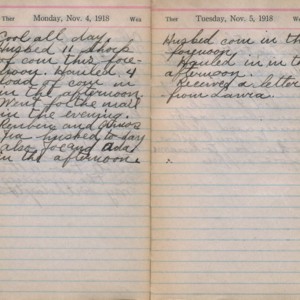 Ther Monday, Nov. 4, 1918 Wea
Cool all day
husked 11 shocks
of corn this fore-
noon. Hauled 4
load corn in
in the afternoon.
Went for the mail
in the evening.
Reuben and
husked to day
also and Ada
in the afternoon.
Ther Tuesday, Nov. 5, 1918 Wea
Husked corn in the
forenoon.
Hauled in in the
afternoon.
Received a letter
from Laura.